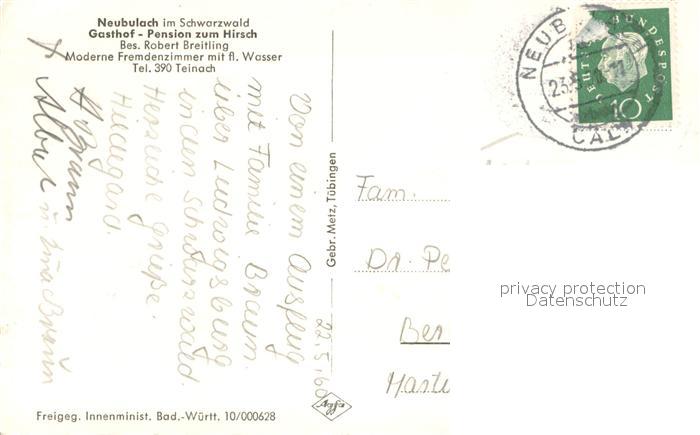 Neubulach im Schwarzwald
Gasthof - Pension zum Hirsch
Bes. Robert Breitling
Moderne Fremdenzimmer mit fl. Wasser
Tel. 390 Teinach
22.5.60
Von einem Ausflug
mit Familie Braun
über Ludwigsburg
in den Schwarzwald
Herzliche Grüße.
Hildegard.
Braun
u. Braun
Gebr. Metz, Tübingen
DEUTSCHE BUNDESPOST
10
NEUB
CAL
Fam.
Dr. Pe
Ber
Maste
privacy protection
Datenschutz
Agfa
Freigeg. Innenminist. Bad.-Württ. 10/000628